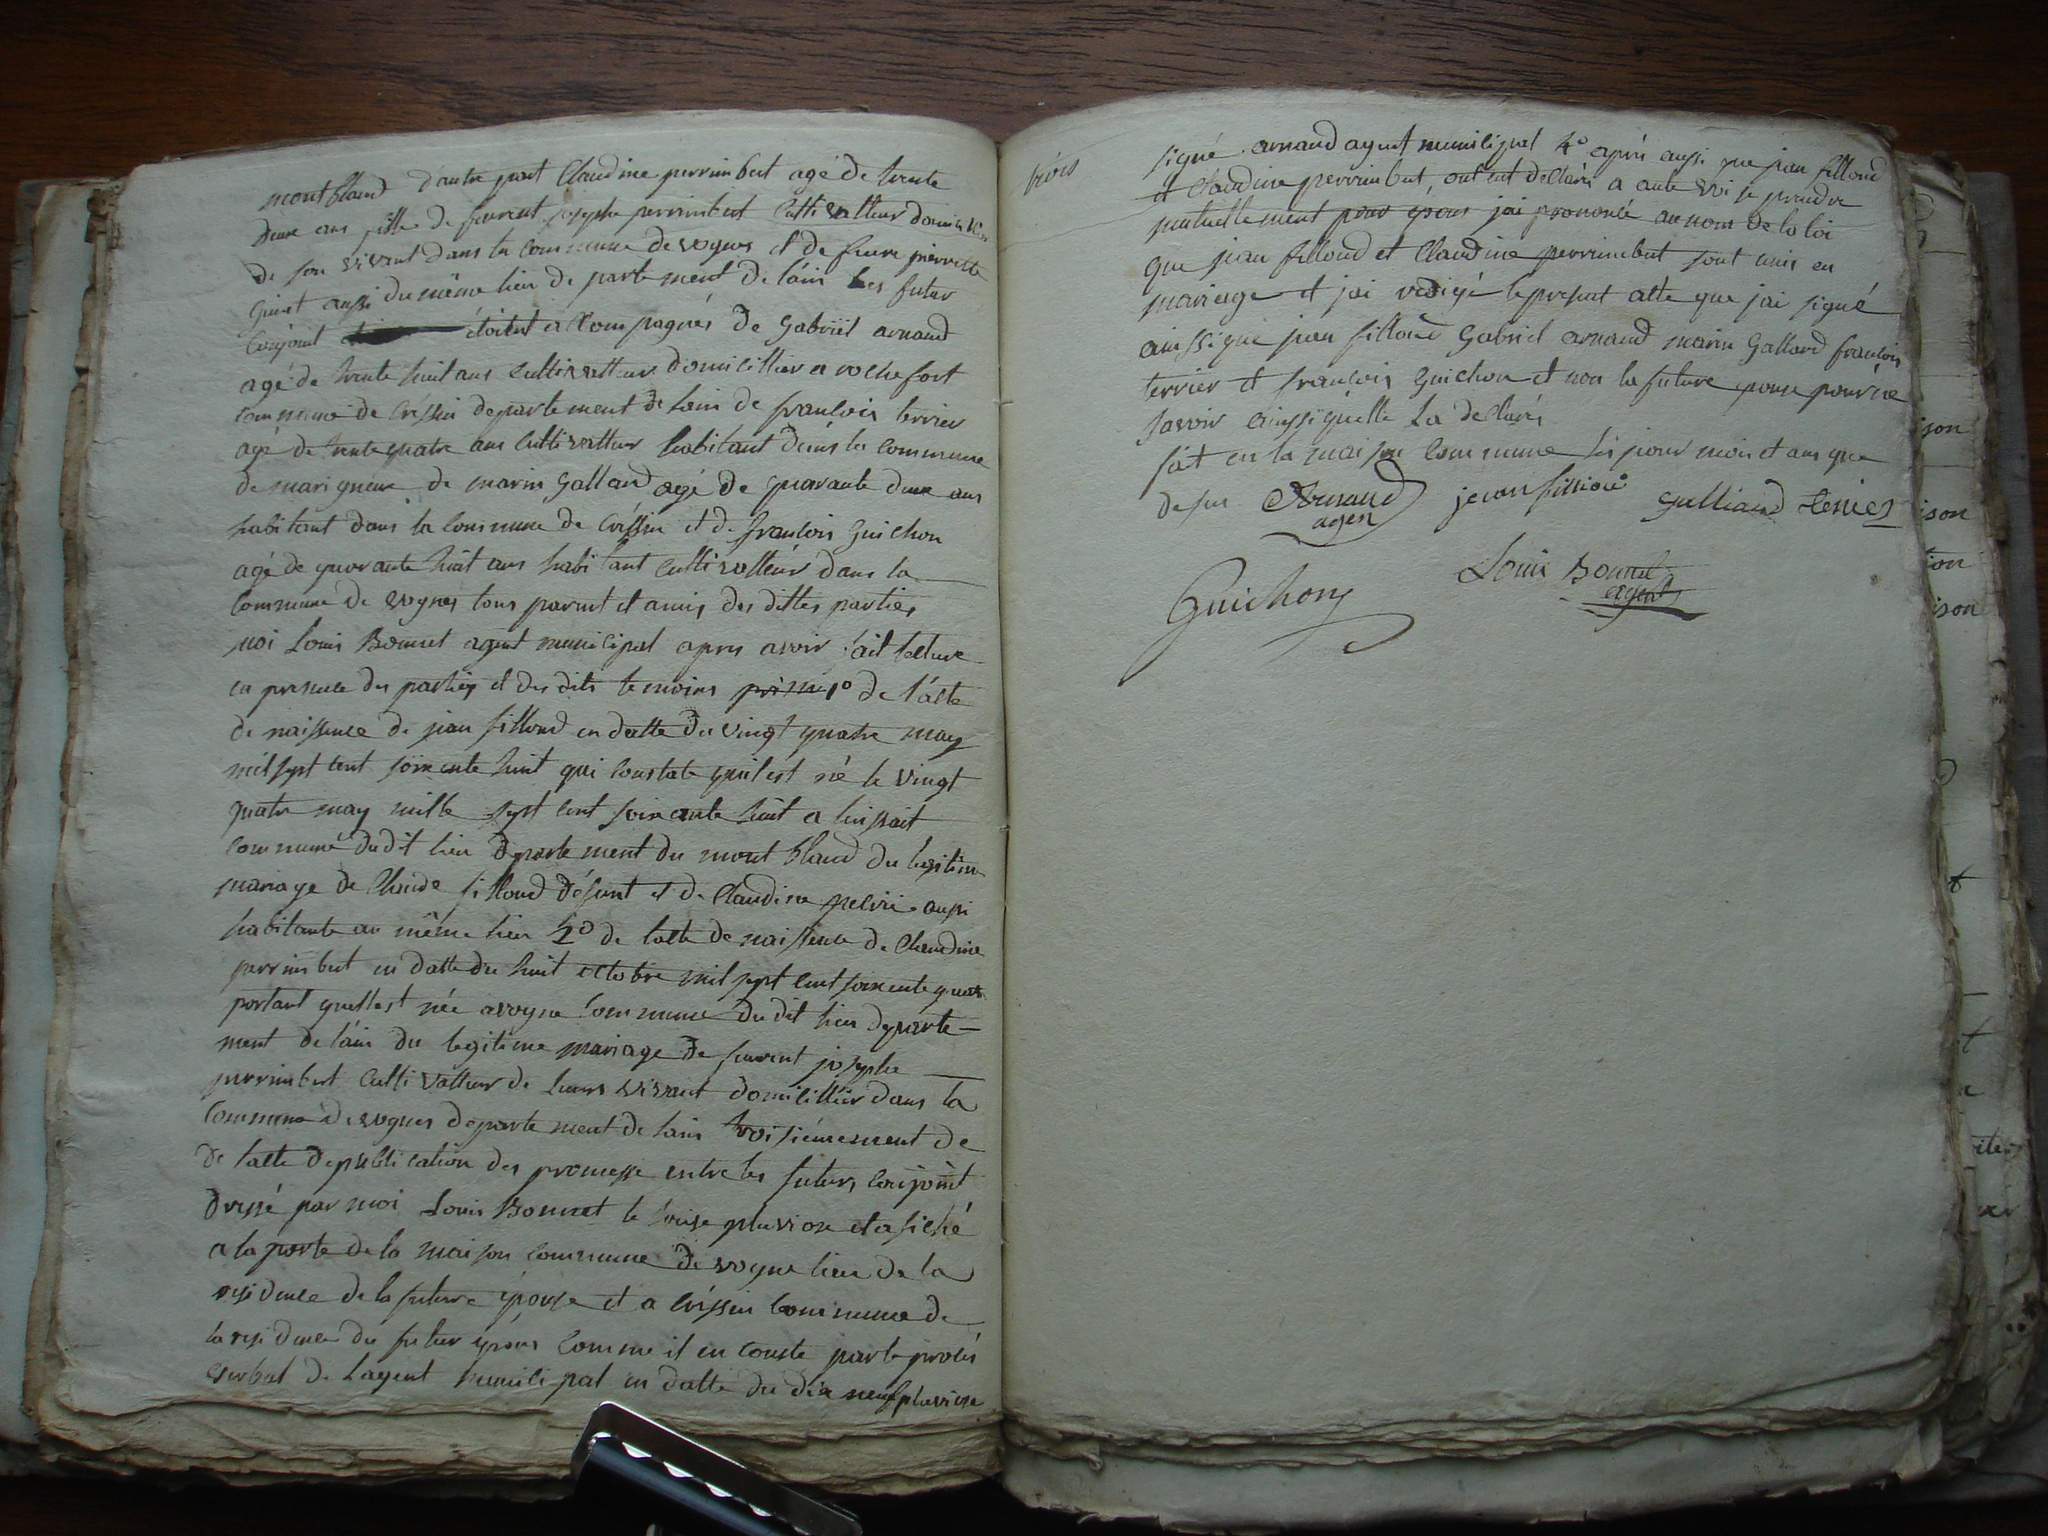 montblanc d'autre part Claudine perrimbert agé de trente
deux ans fille de feu josephe perrimbert Cultivatteur domicilié
de son vivant dans la commune de vognes et de feue pierrette
aussi du même lieu departement de l'ain les futur
Conjoint étoitent accompagnés de Gabriel arnaud
agé de trente huit ans cultivatteur domicillier a rochefort
commune de Créssin departement de lain de francois terrier
agé de trente quatre ans cultivatteur habitant dans la commune
de marigneux de marin Galland agé de quarante deux ans
habitant dans la Commune de Créssin et de francois Guichon
agé de quarante huit ans habitant cultivatteur dans la
Commune de vognes tous parent et amis des dittes parties
moi Louis Bonnet agent municipal apres avoir fait lecture
en presence des parties et des dits temoins 1º de l'acte
de naissence de jean filloud en datte du vingt quatre may
mil sept cent soixente huit qui constate quil est né le vingt
quatre may mille sept cent soixante huit a
commune du dit lieu departement du mont blanc du legitime
mariage de Claude filloud défunt et de Claudine aussi
habitante au même lieu 2º de lacte de naissence de Claudine
perrimbert en datte du huit octobre mil sept cent soixente quatre
portant quelle est née a vogne Commune du dit lieu departe-
ment de l'ain du legitime mariage de josephe
perrimbert Cultivatteur de leurs vivant domicillier dans la
Commune de vognes departement de lain troisiémement de
de lacte de publication des promesse entre les futurs conjoint
dressé par moi Louis Bonnet le pluviose et afiché
a la porte de la maison commune de vogne lieu de la
residence de la future épouse et a Créssin Commune de
la residence du futur epoux comme il en conste par le procés
verbal de Lagent municipal en datte du dix neuf pluviose
signé arnaud agent municipal 4º aprés aussi que jean filloud
et Claudine perrimbert, ont eut declaré a aute voi se prendre
mutuellement pour epoux jai prononcé au nom de la loi
que jean filloud et Claudine perrimbert sont unis en
mariage et jai redigé le present acte que jai signé
ainssi que jean filloud Gabriel arnaud marin Galland francois
terrier et francois Guichon et non la future epouse pour ne
savoir ainssi quelle La declaré
fait en la maison Commune les jour mois et ans que
desus Arnaud jean Galliand terrier
agent
Louis Bonnet
agent
Guichon